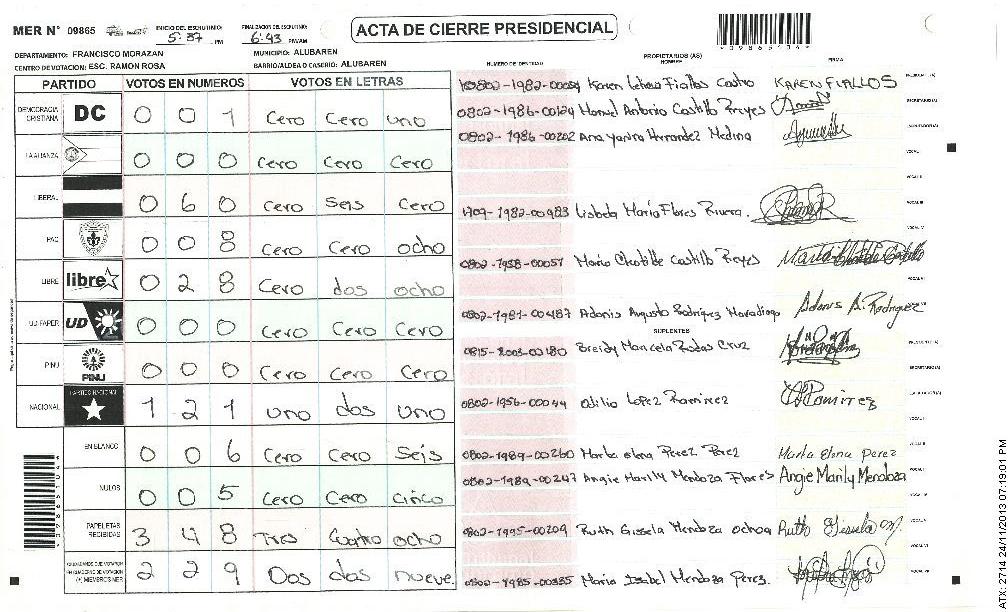 MER N° 09865 INICIO DEL ESCRUTINIO: 5:37 PM FINALIZACION DEL ESCRUTINIO: 6:43 PM/AM
ACTA DE CIERRE PRESIDENCIAL
DEPARTAMENTO: FRANCISCO MORAZAN MUNICIPIO: ALUBAREN
CENTRO DE VOTACION: ESC. RAMON ROSA BARRIO/ALDEA O CASERIO: ALUBAREN
PARTIDO VOTOS EN NUMEROS VOTOS EN LETRAS
DEMOCRACIA CRISTIANA DC 0 0 1 Cero Cero uno
LA ALIANZA 0 0 0 Cero Cero Cero
LIBERAL 0 6 0 Cero Seis Cero
PAC 0 0 8 Cero Cero ocho
LIBRE libre 0 2 8 Cero dos ocho
UD-FAPER UD 0 0 0 Cero Cero Cero
PINU PINU 0 0 0 Cero Cero Cero
NACIONAL PARTIDO NACIONAL 1 2 1 uno dos uno
EN BLANCO 0 0 6 Cero Cero Seis
NULOS 0 0 5 Cero Cero cinco
PAPELETAS RECIBIDAS 3 4 8 Tres Cuatro ocho
CIUDADANOS QUE VOTARON EN CUADERNO DE VOTACION (+) MIEMBROS MER 2 2 9 Dos dos nueve
NUMERO DE IDENTIDAD PROPIETARIOS (AS) NOMBRE FIRMA
Karen Fiallos Castro KAREN FIALLOS
0802-1986-00124 Manuel Antonio Castillo Reyes
0802-1986-00202 Ana Hernandez Medina
1709-1982-00983 Maria Flores Rivera
0802-1958-00057 Maria Clotilde Castillo Reyes Maria Clotilde Castillo
0802-1981-00487 Adonis Augusto Rodriguez Maradiaga Adonis A. Rodriguez
SUPLENTES
0815-2003-00180 Breidy Marcela Rodas Cruz
0802-1956-00044 Odilio Lopez Ramirez Ramirez
0802-1989-00260 Marta Elena Perez Perez Marta Elena Perez
0802-1989-00247 Angie Marily Mendoza Flores Angie Marily Mendoza
0802-1995-00209 Ruth Gissela Mendoza Ochoa Ruth Gissela M.
0802-1985-00385 Maria Isabel Mendoza Perez.
ATX: 2714 24/11/2013 07:19:01 PM